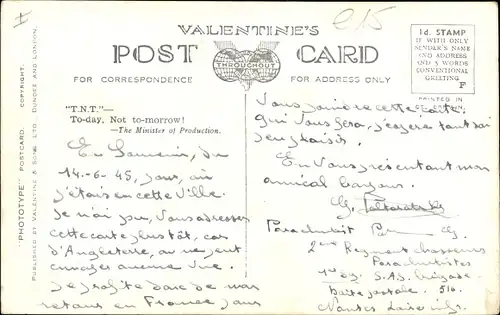 VALENTINE'S
POST CARD
THROUGHOUT
FOR CORRESPONDENCE
FOR ADDRESS ONLY
1d. STAMP
IF WITH ONLY
SENDER'S NAME
AND ADDRESS
AND 5 WORDS
CONVENTIONAL
GREETING
F
PRINTED IN
"PHOTOTYPE" POSTCARD. COPYRIGHT.
PUBLISHED BY VALENTINE & SONS, LTD., DUNDEE AND LONDON.
"T.N.T."—
To-day, Not to-morrow!
—The Minister of Production.
En Souvenir, du
14-6-45, jour, où
j'étais en cette ville.
Je n'ai pu, Vous adresser
cette carte plustôt, car
d'Angleterre, on ne peut
envoyer aucune vue.
Je profite donc de mon
retour en France pour
Vous joindre cette carte
qui vous fera, j'espère tant soi
peu plaisir.
En Vous présentant mon
amical bonjour.
G.
Parachutist
2ème Régiment chasseurs
Parachutistes
S.A.S. brigade
boite postale. 516.
Nantes Loire infr.